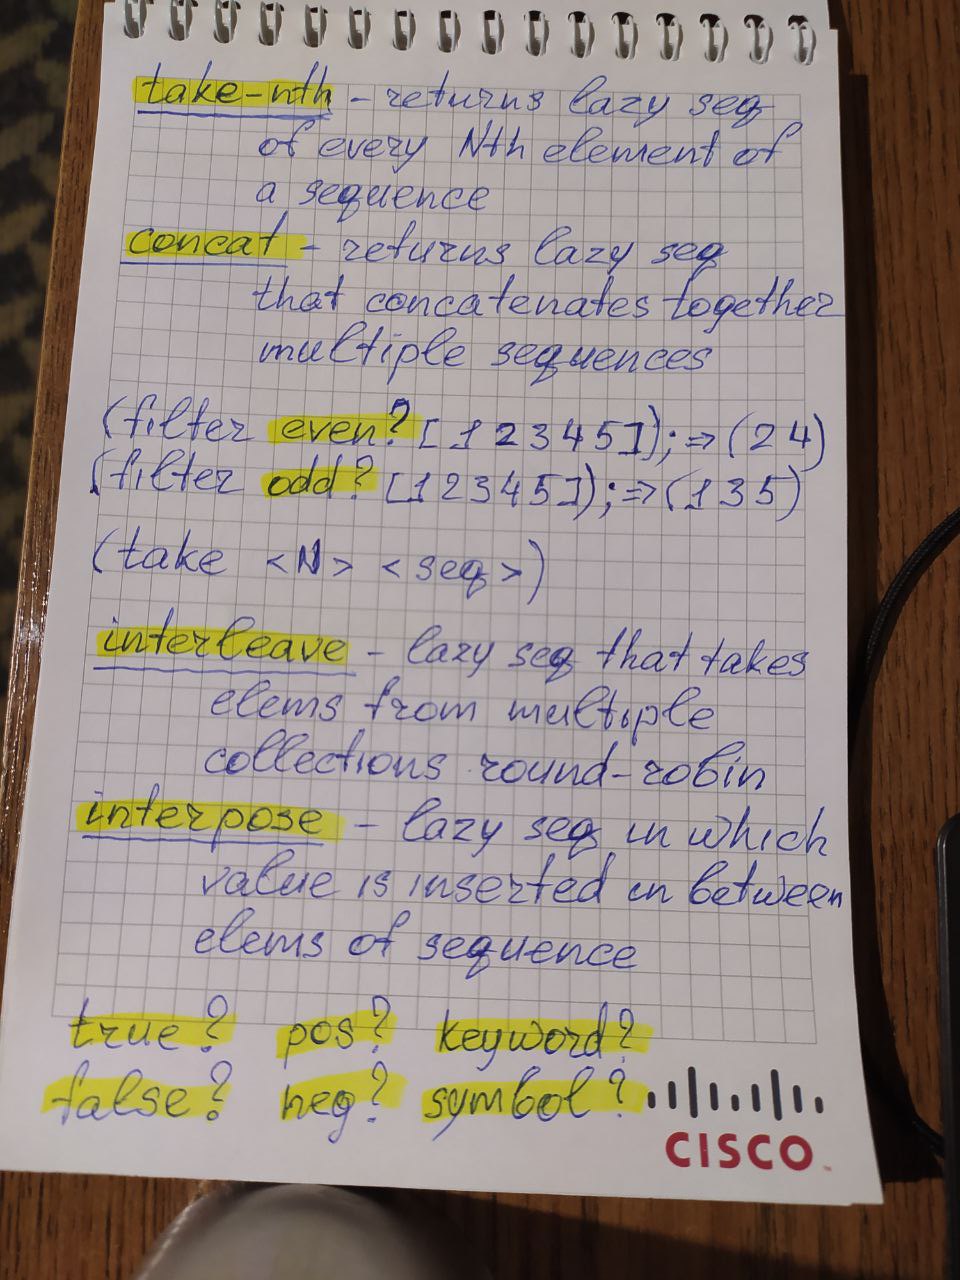 take-nth - returns lazy seq
of every Nth element of
a sequence
concat - returns lazy seq
that concatenates together
multiple sequences
(filter even? [1 2 3 4 5]);=>(2 4)
(filter odd? [1 2 3 4 5]);=>(1 3 5)
(take <N> <seq>)
interleave - lazy seq that takes
elems from multiple
collections round-robin
interpose - lazy seq in which
value is inserted in between
elems of sequence
true? pos? keyword?
false? neg? symbol?
CISCO